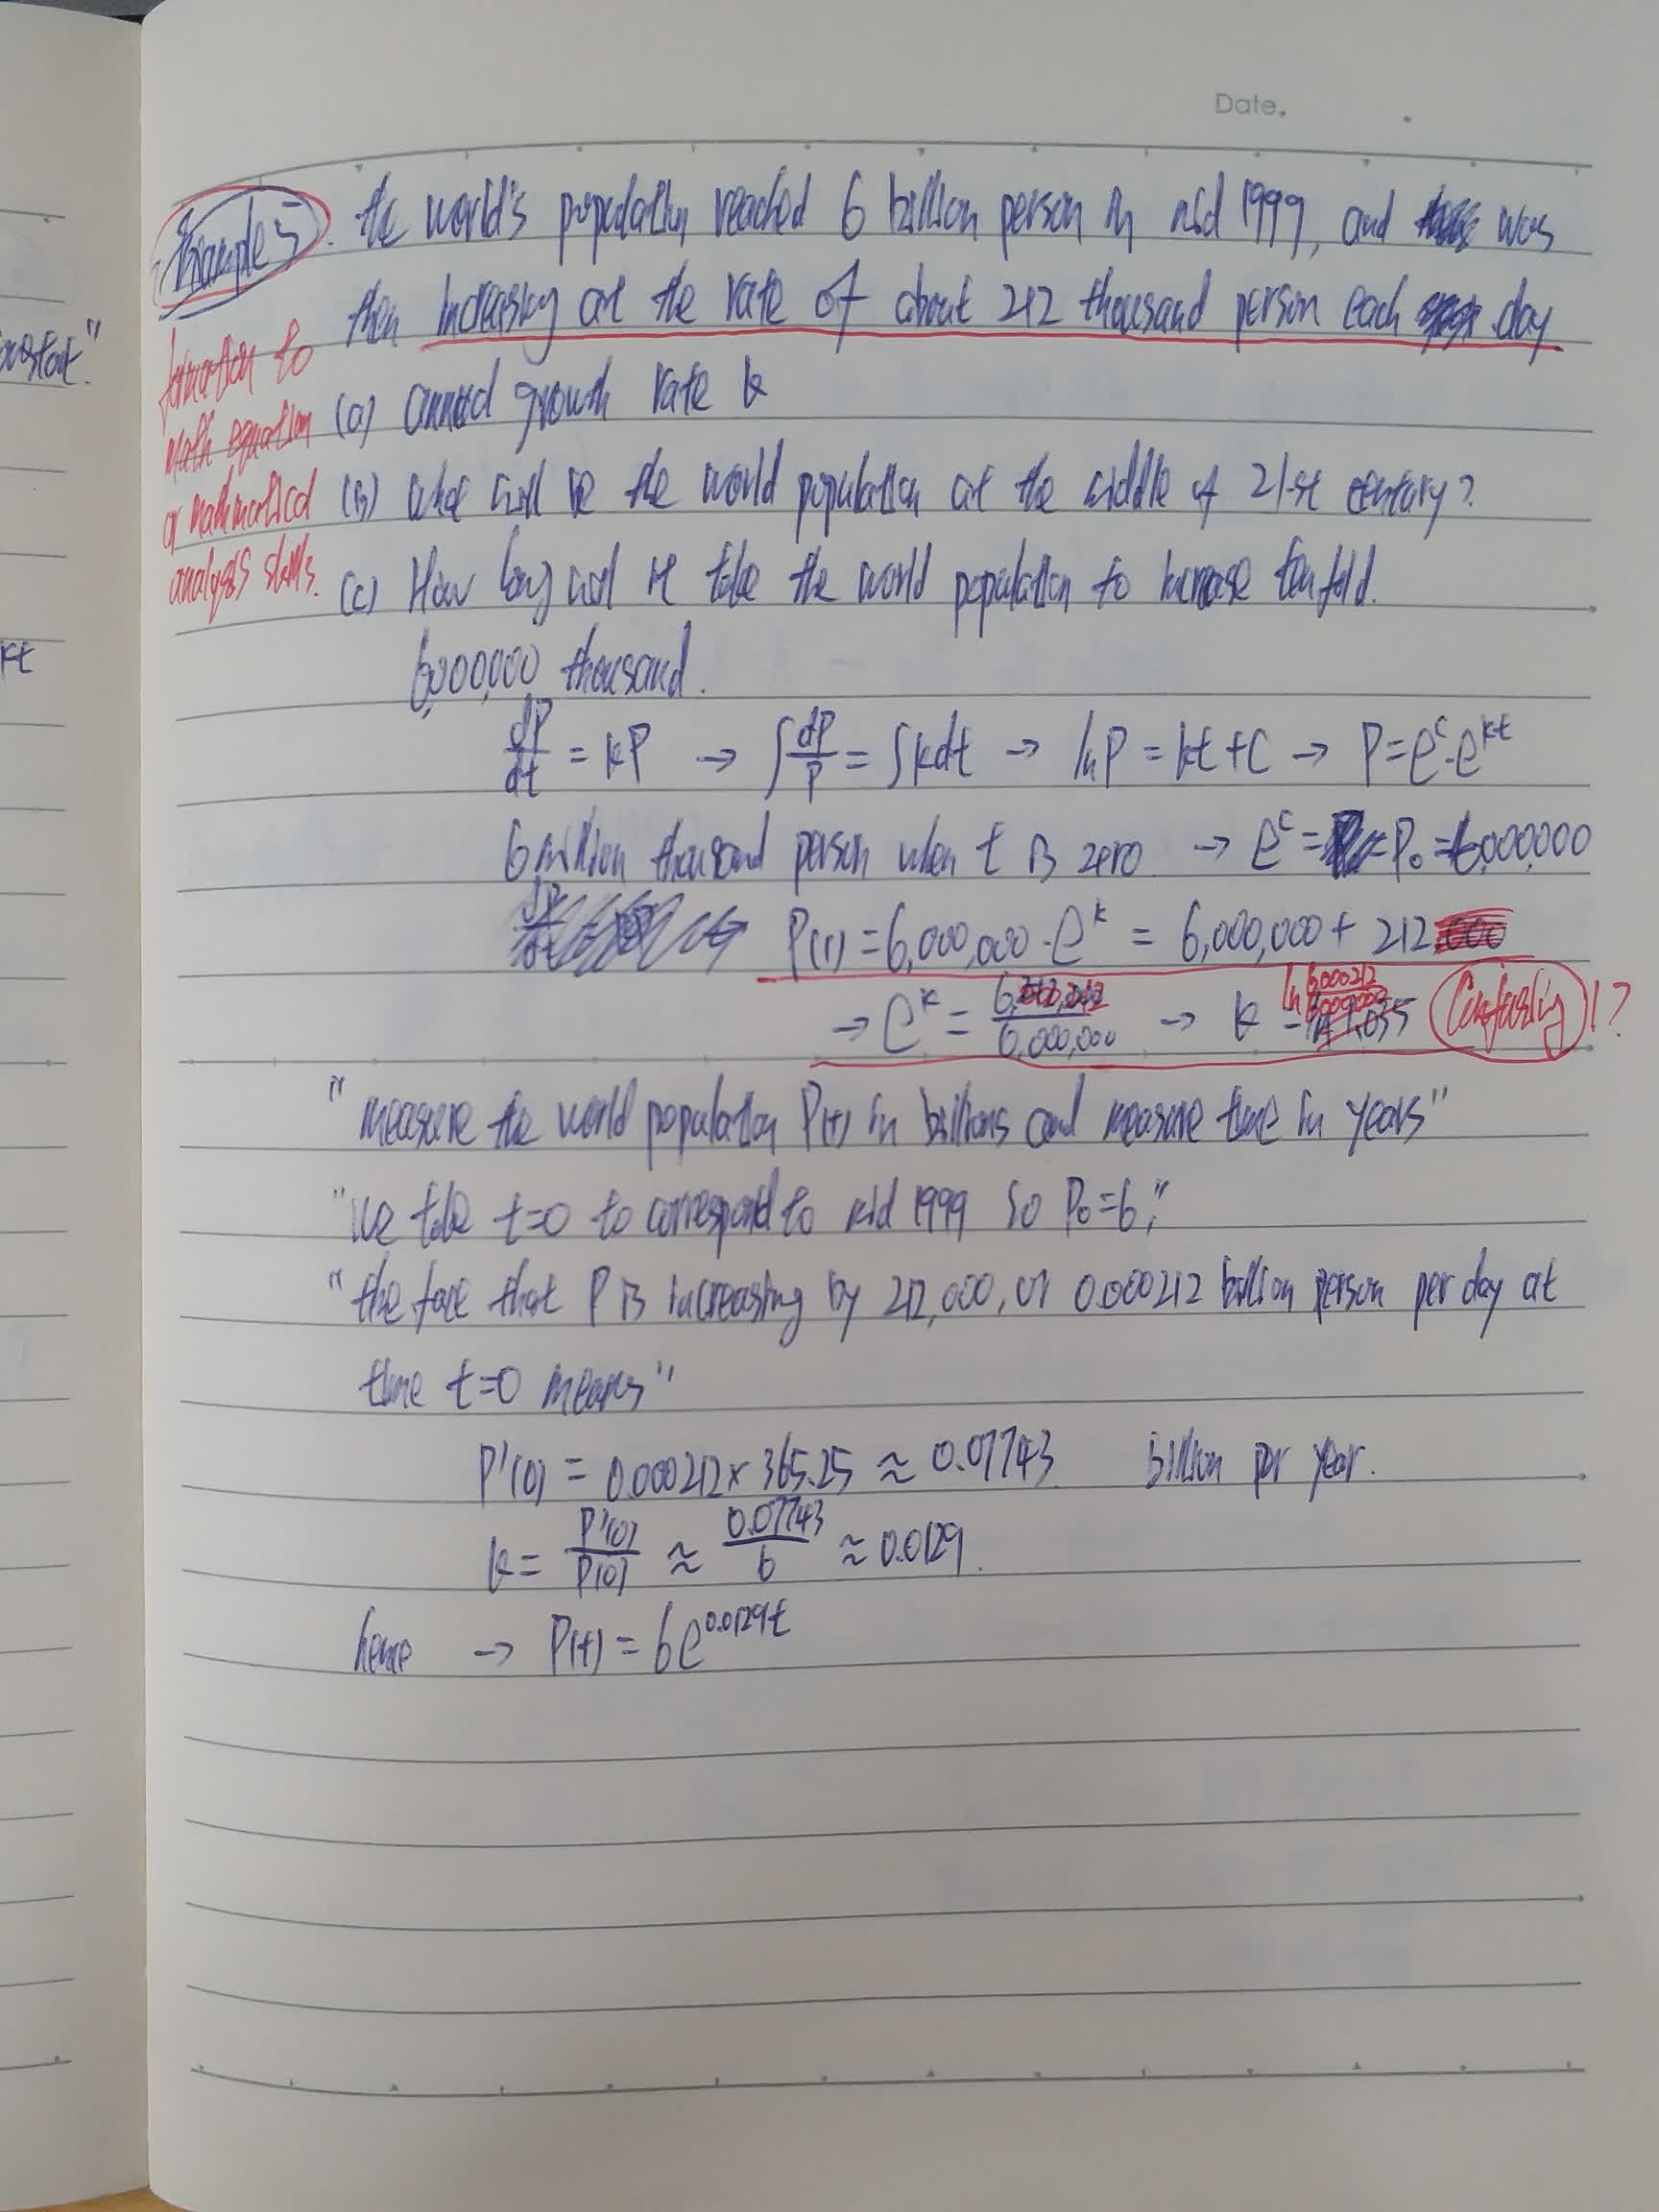 Date.
Example 5. the world's population reached 6 billion person in mid 1999, and was
then increasing at the rate of about 212 thousand person each day
(a) annual growth rate k
(b) what will be the world population at the middle of 21-st century?
(c) How long will it take the world population to increase tenfold.
to
math equation
or mathmatical
analysis skills.
6,000,000 thousand.
dP/dt = kP → ∫dP/P = ∫kdt → lnP = kt + C → P = e^c · e^kt
6 million thousand person when t is zero → e^c = P₀ = 6,000,000
P(1) = 6,000,000 · e^k = 6,000,000 + 212
→ e^k = 6,000,212/6,000,000 → k = ln 6000212/6000000 (Confusing)!?
"measure the world population P(t) in billions and measure time in years"
"we take t=0 to correspond to mid 1999 so P₀=6,"
"the fact that P is increasing by 212,000, or 0.000212 billion person per day at
time t=0 means"
P'(0) = 0.000212 × 365.25 ≈ 0.07743 billion per year.
k = P'(0)/P(0) ≈ 0.07743/6 ≈ 0.0129.
hence → P(t) = 6e^0.0129t
onstant."
kt